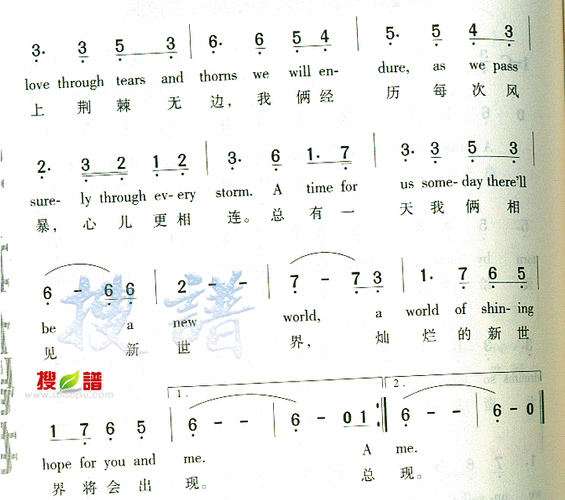 3· 3 5 3 | 6· 6 5 4 | 5· 5 4 3 |
love through tears and thorns we will en- dure, as we pass
上 荆 棘 无 边，我 俩 经 历 每 次 风
2· 3 2 1 2 | 3· 6 1· 7 | 3· 3 5 3 |
sure- ly through ev-ery storm. A time for us some-day there'll
暴，心 儿 更 相 连。总 有 一 天 我 俩 相
6 - 6 6 | 2 - - | 7 - 7 3 | 1· 7 6 5 |
be a new world, a world of shin-ing
见 新 世 界，灿 烂 的 新 世
搜谱
搜谱
www.sooopu.com
1. 2.
1 7 6 5 | 6 - - | 6 - 0 1 :| 6 - - | 6 - 0 ‖
hope for you and me. A me.
界 将 会 出 现。 总 现。